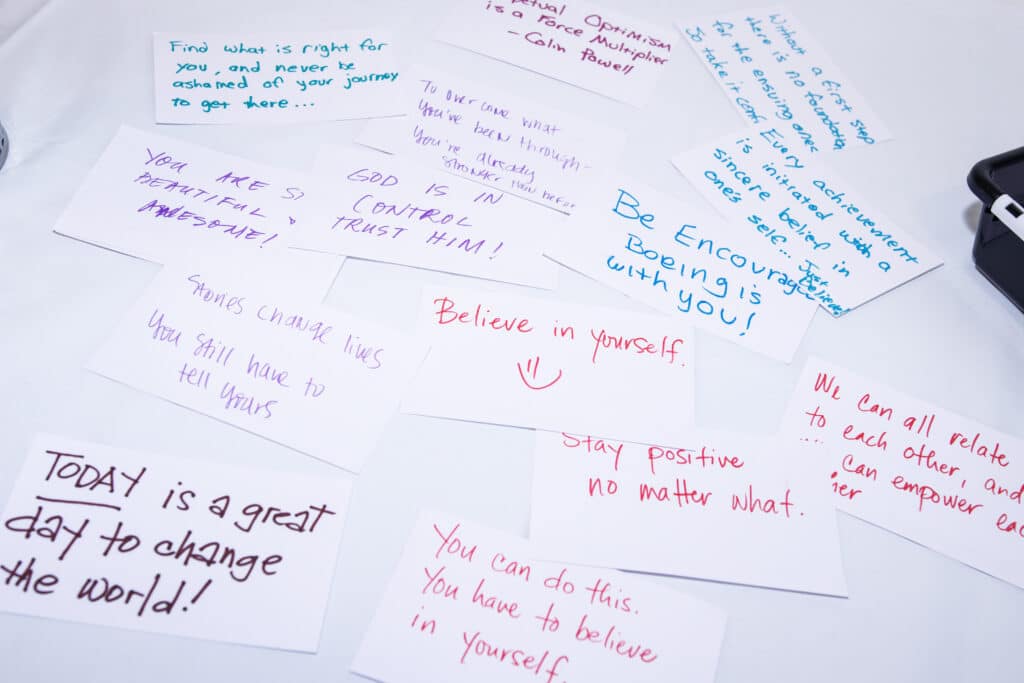 Find what is right for
you, and never be
ashamed of your journey
to get there...
Optimism
is a Force Multiplier
- Colin Powell
Without a first step
there is no foundation
for the ensuing ones
So take it
Every achievement
is initiated with a
sincere belief in
one's self... Just
Believe!
To overcome what
You've been through-
You're already
stronger than
YOU ARE
BEAUTIFUL
AWESOME!
GOD IS IN
CONTROL
TRUST HIM!
Be Encouraged
Boeing is
with you!
Stories change lives
You still have to
tell yours
Believe in yourself.
We can all relate
to each other, and
....
can empower
Stay positive
no matter what.
TODAY is a great
day to change
the world!
You can do this.
You have to believe
in yourself.